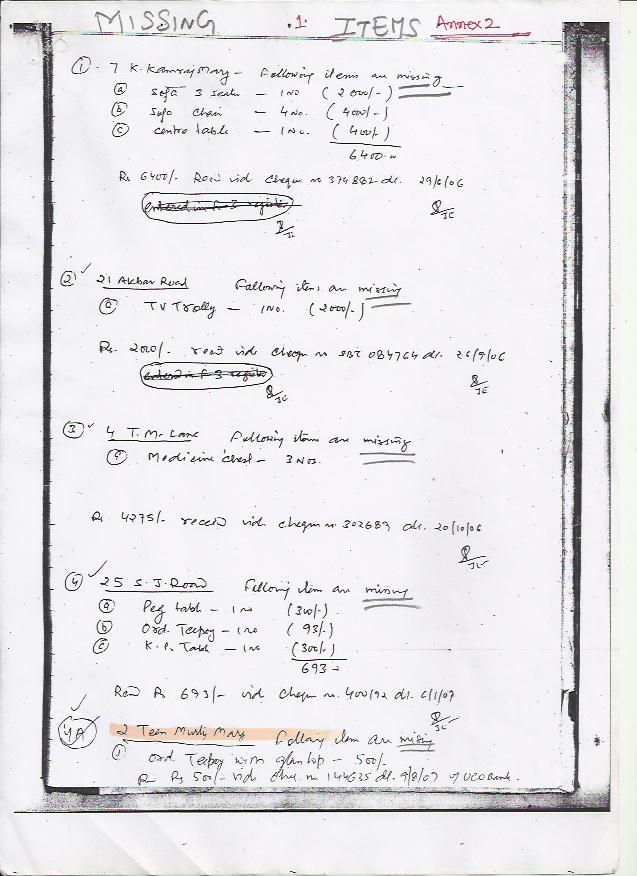 MISSING .1. ITEMS Annex 2
① . 7 K. Kamraj Marg - Following items are missing
ⓐ Sofa 3 seater - 1 No (2000/-)
ⓑ Sofa Chair - 4 No. (4000/-)
ⓒ centre table - 1 No. (400/-)
6400
Rs 6400/- Recd vide cheque no 374882 dt. 29/6/06
entered in F-3 register
JE
JE
② 21 Akbar Road Following items are missing
ⓐ TV Trolly - 1 No. (2000/-)
Rs. 2000/- recd vide cheque no SBI 084764 dt. 26/9/06
entered in F-3 register
JE
JE
③ 4 T.M. Lane Following items are missing
Medicine chest - 3 Nos.
Rs. 4275/- received vide cheque no 302689 dt. 20/10/06
JE
④ 25 S.J. Road Following item are missing
ⓐ Peg table - 1 No (300/-)
ⓑ Ord. Teepoy - 1 No (93/-)
ⓒ K.P. Table - 1 No (300/-)
693
Recd Rs 693/- vide cheque no. 400192 dt. 6/1/07
JE
4A 2 Teen Murti Marg Following item are missing
① Ord Teepoy with glass top - 500/-
Rs 500/- vide Che. no 144635 dt. 9/8/07 of UCO bank.